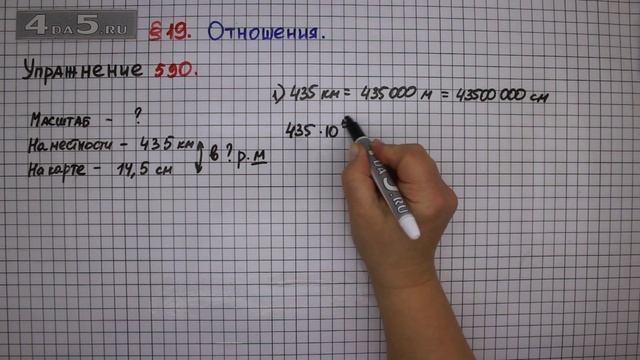 4DA5.RU
§19. Отношения.
Упражнение 590.
Масштаб - ?
На местности - 435 км
На карте - 14,5 см
в ? р. м
1) 435 км = 435000 м = 43500 000 см
435 · 10
4DA5.RU